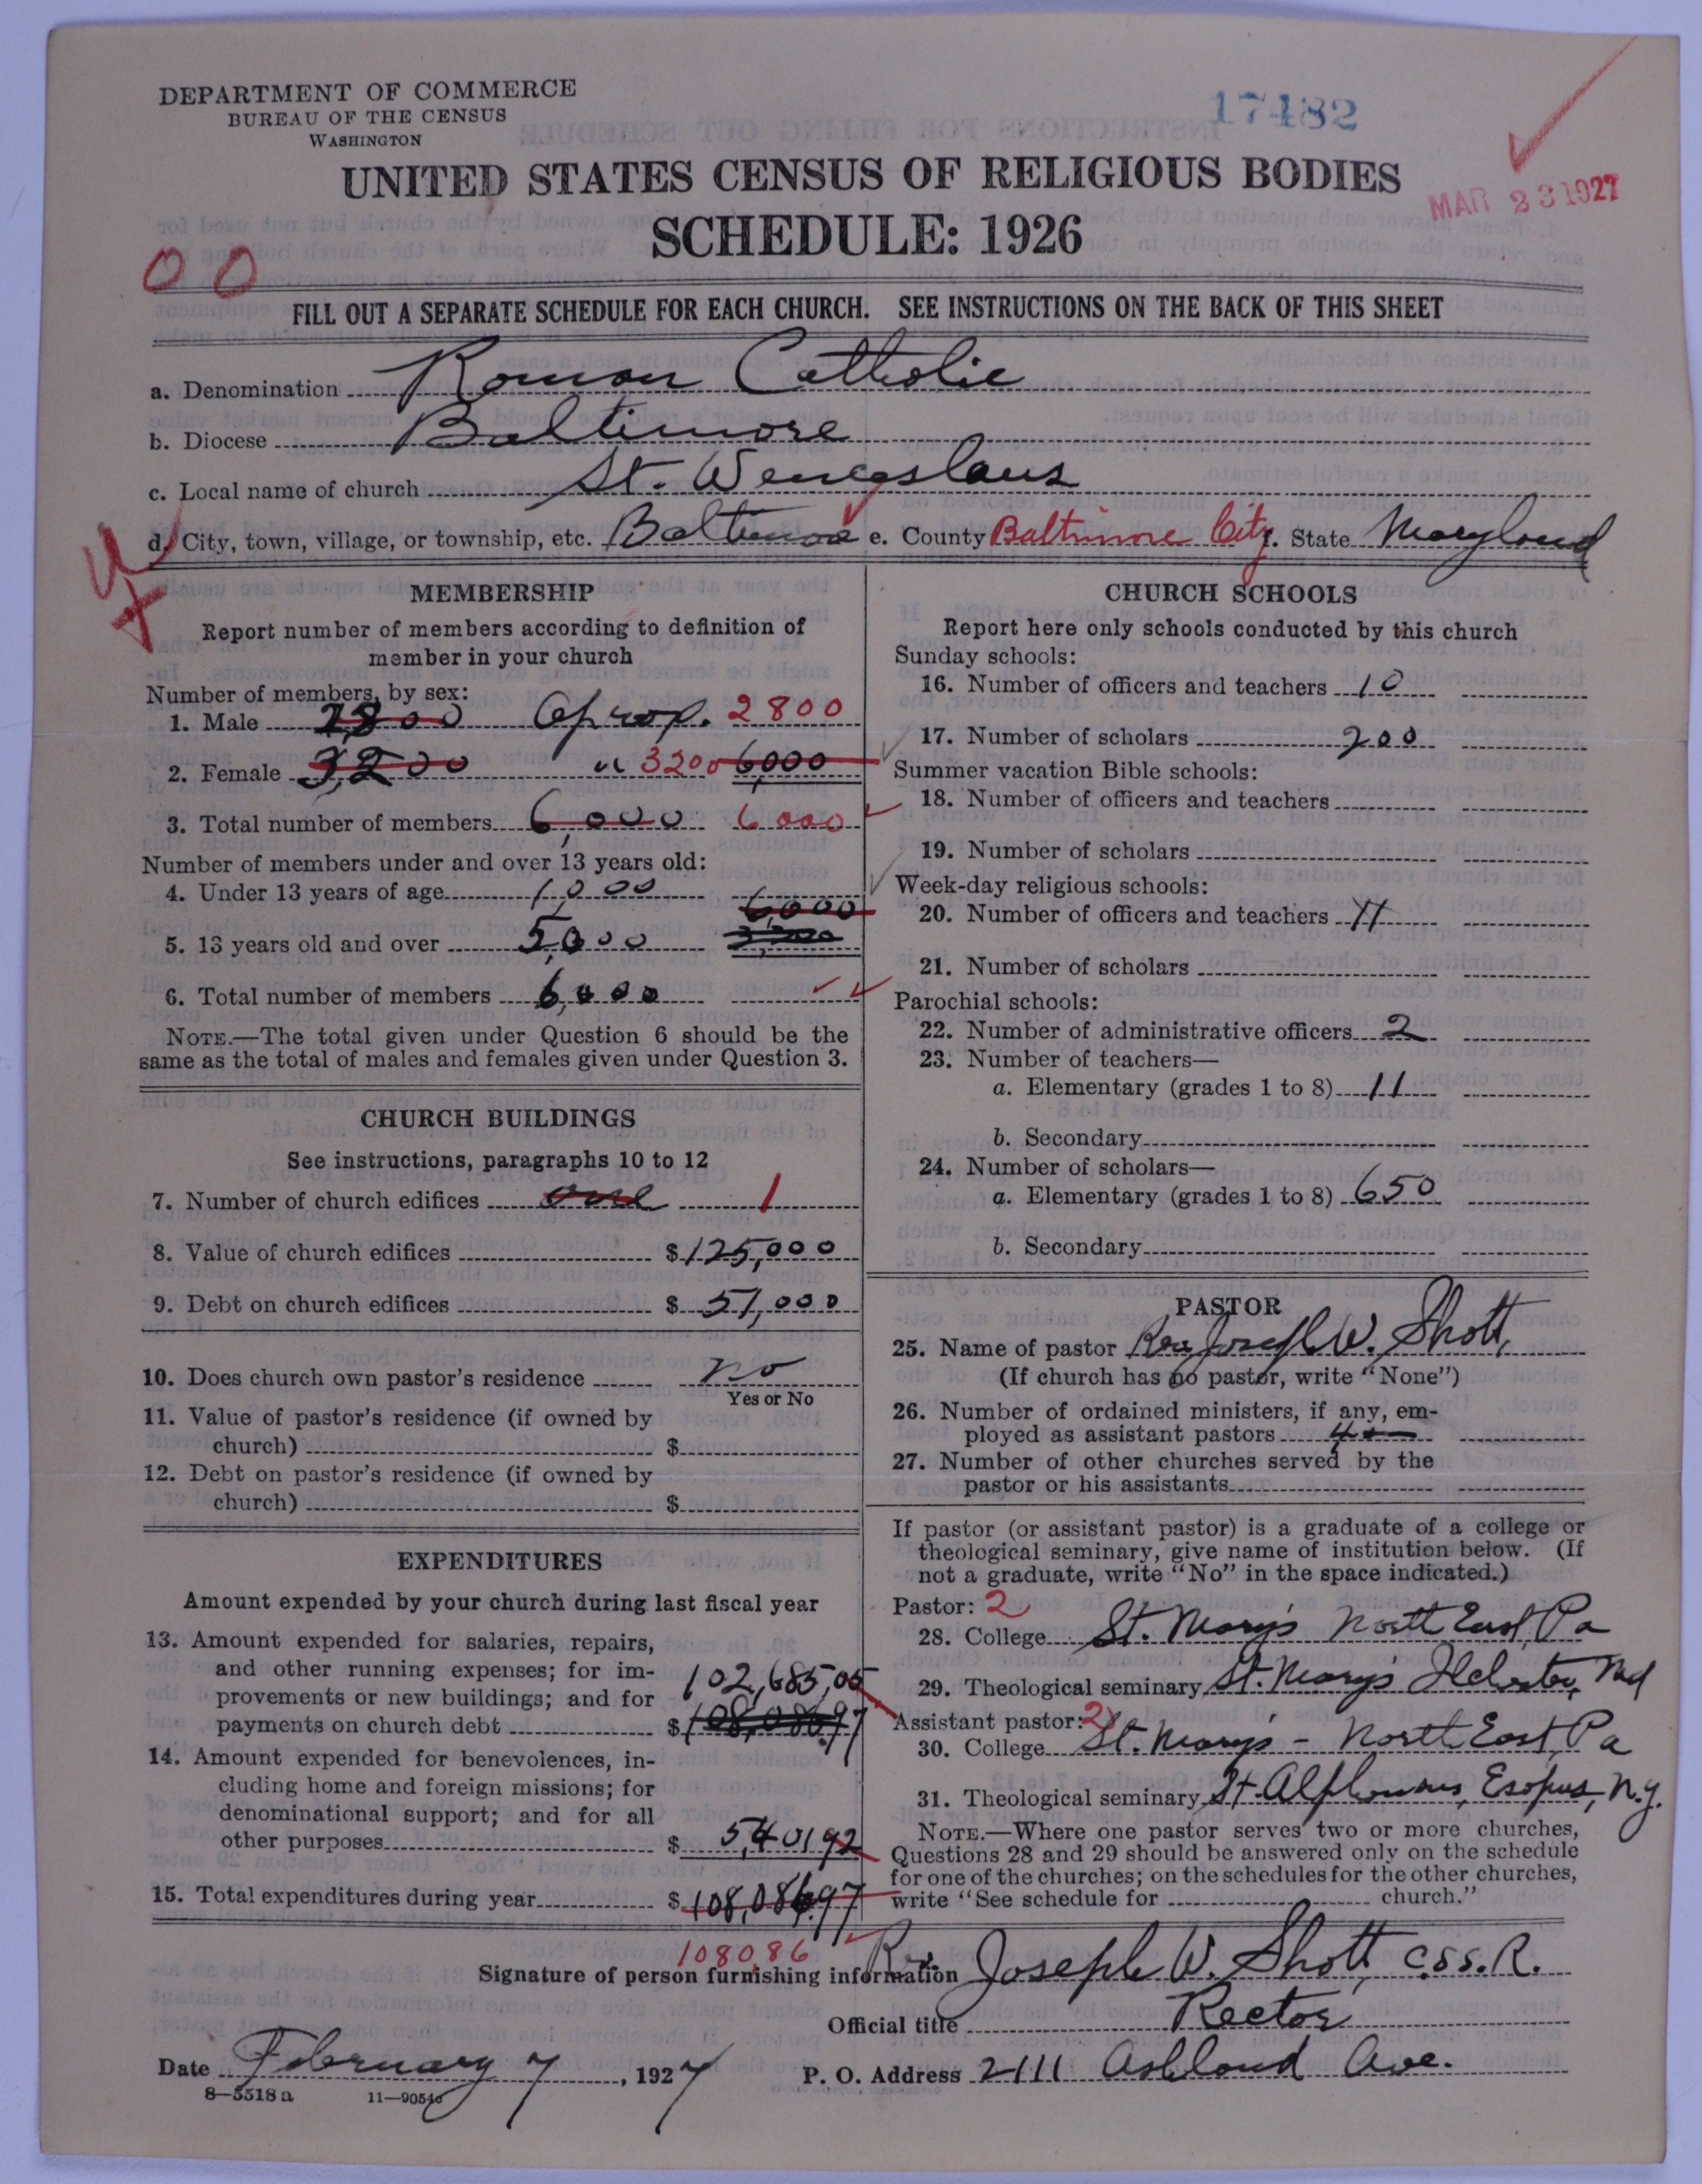 DEPARTMENT OF COMMERCE
BUREAU OF THE CENSUS
WASHINGTON
17482
UNITED STATES CENSUS OF RELIGIOUS BODIES
MAR 23 1927
SCHEDULE: 1926
00
FILL OUT A SEPARATE SCHEDULE FOR EACH CHURCH. SEE INSTRUCTIONS ON THE BACK OF THIS SHEET
a. Denomination Roman Catholic
b. Diocese Baltimore
c. Local name of church St. Wenceslaus
d. City, town, village, or township, etc. Baltimore e. County Baltimore City f. State Maryland
MEMBERSHIP
Report number of members according to definition of
member in your church
Number of members, by sex:
1. Male 2800 Aprox. 2800
2. Female 3,200 " 3200 6,000
3. Total number of members 6,000 6000
Number of members under and over 13 years old:
4. Under 13 years of age 1,000
6,000
5. 13 years old and over 5,000
6. Total number of members 6,000
NOTE.—The total given under Question 6 should be the
same as the total of males and females given under Question 3.
CHURCH BUILDINGS
See instructions, paragraphs 10 to 12
7. Number of church edifices one 1
8. Value of church edifices $125,000
9. Debt on church edifices $51,000
10. Does church own pastor's residence no
Yes or No
11. Value of pastor's residence (if owned by
church) $
12. Debt on pastor's residence (if owned by
church) $
EXPENDITURES
Amount expended by your church during last fiscal year
13. Amount expended for salaries, repairs,
and other running expenses; for im-
provements or new buildings; and for 102,685,05
payments on church debt $108,086.97
14. Amount expended for benevolences, in-
cluding home and foreign missions; for
denominational support; and for all
other purposes $ 5,40192
15. Total expenditures during year $108,086.97
108086
CHURCH SCHOOLS
Report here only schools conducted by this church
Sunday schools:
16. Number of officers and teachers 10
17. Number of scholars 200
Summer vacation Bible schools:
18. Number of officers and teachers
19. Number of scholars
Week-day religious schools:
20. Number of officers and teachers 11
21. Number of scholars
Parochial schools:
22. Number of administrative officers 2
23. Number of teachers—
a. Elementary (grades 1 to 8) 11
b. Secondary
24. Number of scholars—
a. Elementary (grades 1 to 8) 650
b. Secondary
PASTOR
25. Name of pastor Rev. Joseph W. Shott,
(If church has no pastor, write "None")
26. Number of ordained ministers, if any, em-
ployed as assistant pastors 4
27. Number of other churches served by the
pastor or his assistants
If pastor (or assistant pastor) is a graduate of a college or
theological seminary, give name of institution below. (If
not a graduate, write "No" in the space indicated.)
Pastor: 2
28. College St. Mary's North East, Pa
29. Theological seminary St. Mary's Ilchester, Md
Assistant pastor: 2
30. College St. Mary's - North East, Pa
31. Theological seminary St. Alphonsus, Esopus, N.Y.
NOTE.—Where one pastor serves two or more churches,
Questions 28 and 29 should be answered only on the schedule
for one of the churches; on the schedules for the other churches,
write "See schedule for church."
Signature of person furnishing information Rev. Joseph W. Shott, C.SS.R.
Official title Rector
Date February 7, 1927 P. O. Address 2111 Ashland Ave.
8—5518a 11—9054